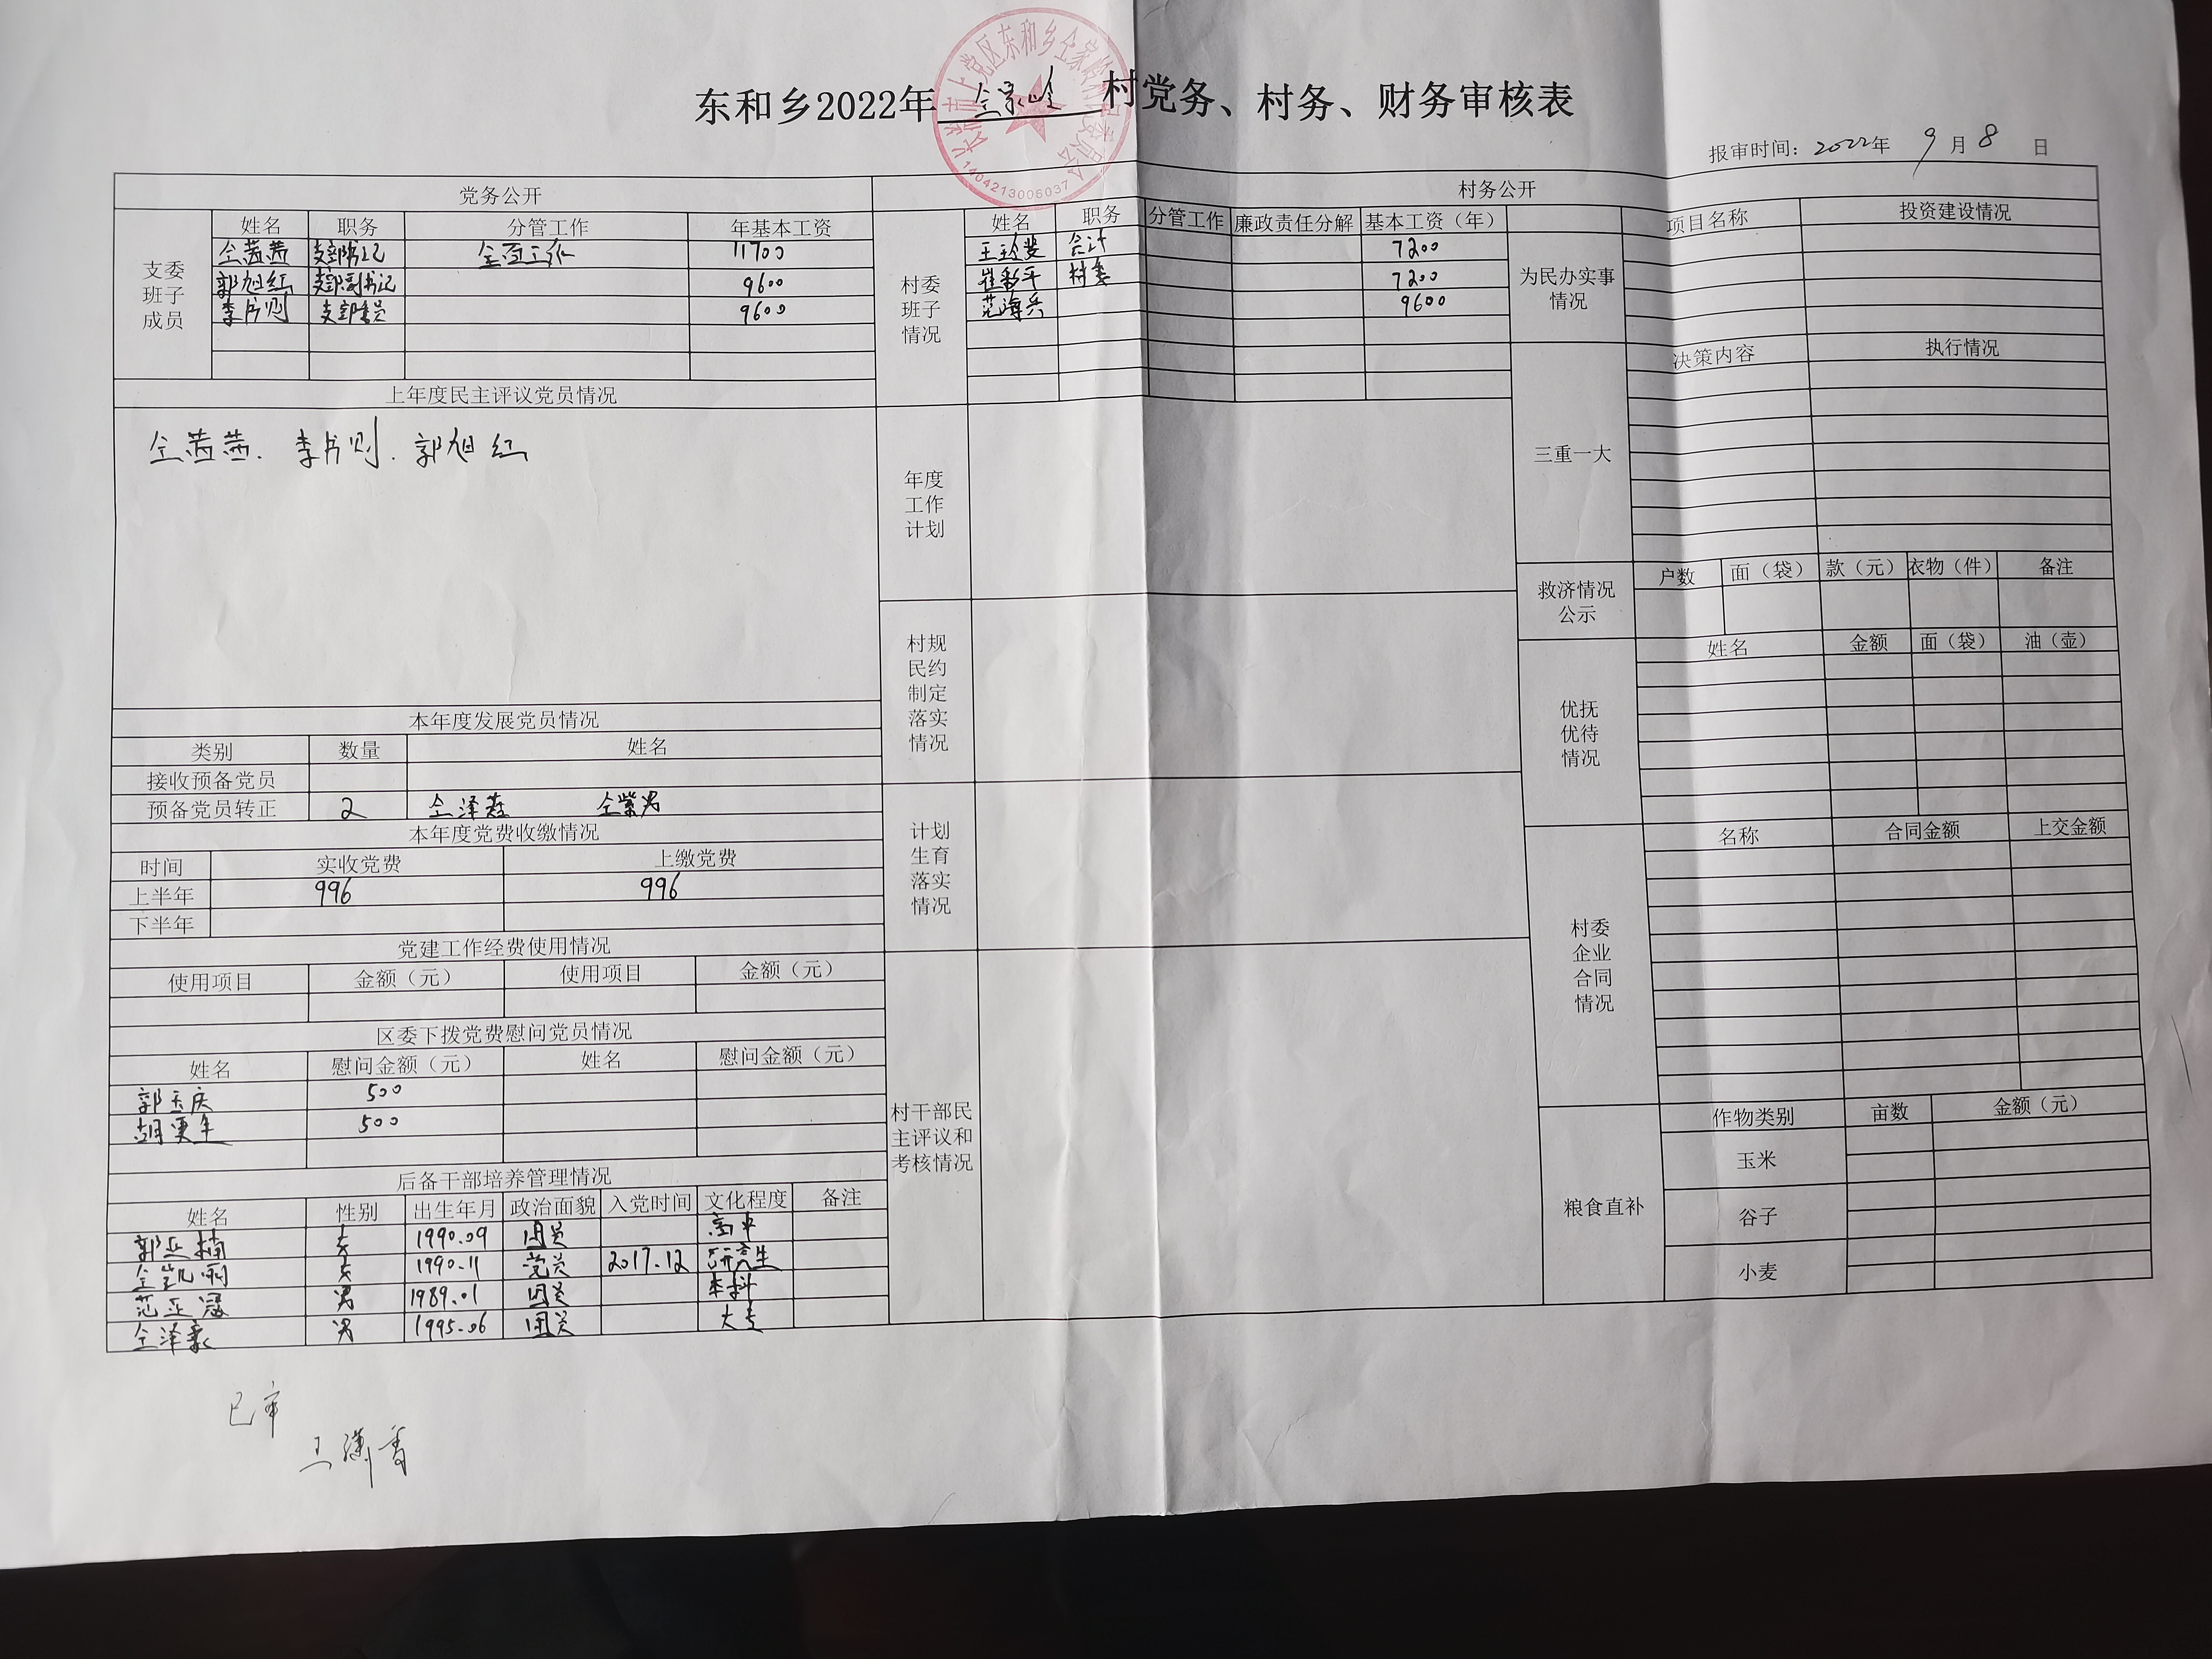 东和乡2022年 仝家岭 村党务、村务、财务审核表
报审时间：2022年 9月 8 日
党务公开
支委班子成员
姓名 职务 分管工作 年基本工资
仝茜茜 支部书记 全面工作 11700
郭旭红 支部副书记 9600
李片则 支部委员 9600
上年度民主评议党员情况
仝茜茜、李片则、郭旭红
本年度发展党员情况
类别 数量 姓名
接收预备党员
预备党员转正 2 仝泽 仝紫男
本年度党费收缴情况
时间 实收党费 上缴党费
上半年 996 996
下半年
党建工作经费使用情况
使用项目 金额（元） 使用项目 金额（元）
区委下拨党费慰问党员情况
姓名 慰问金额（元） 姓名 慰问金额（元）
郭玉庆 500
胡更年 500
后备干部培养管理情况
姓名 性别 出生年月 政治面貌 入党时间 文化程度 备注
郭亚楠 女 1990.09 团员 高中
仝凯丽 女 1990.11 党员 2017.12 研究生
范亚 男 1989.01 团员 本科
仝泽 男 1995.06 团员 大专
村务公开
村委班子情况
姓名 职务 分管工作 廉政责任分解 基本工资（年）
王玲斐 会计 7200
崔彩平 村委 7200
范海兵 9600
年度工作计划
村规民约制定落实情况
计划生育落实情况
村干部民主评议和考核情况
为民办实事情况
项目名称 投资建设情况
三重一大
决策内容 执行情况
救济情况公示
户数 面（袋） 款（元） 衣物（件） 备注
优抚优待情况
姓名 金额 面（袋） 油（壶）
村委企业合同情况
名称 合同金额 上交金额
粮食直补
作物类别 亩数 金额（元）
玉米
谷子
小麦
已审
王潇香
长治市上党区东和乡仝家岭村民委员会
1404213006037